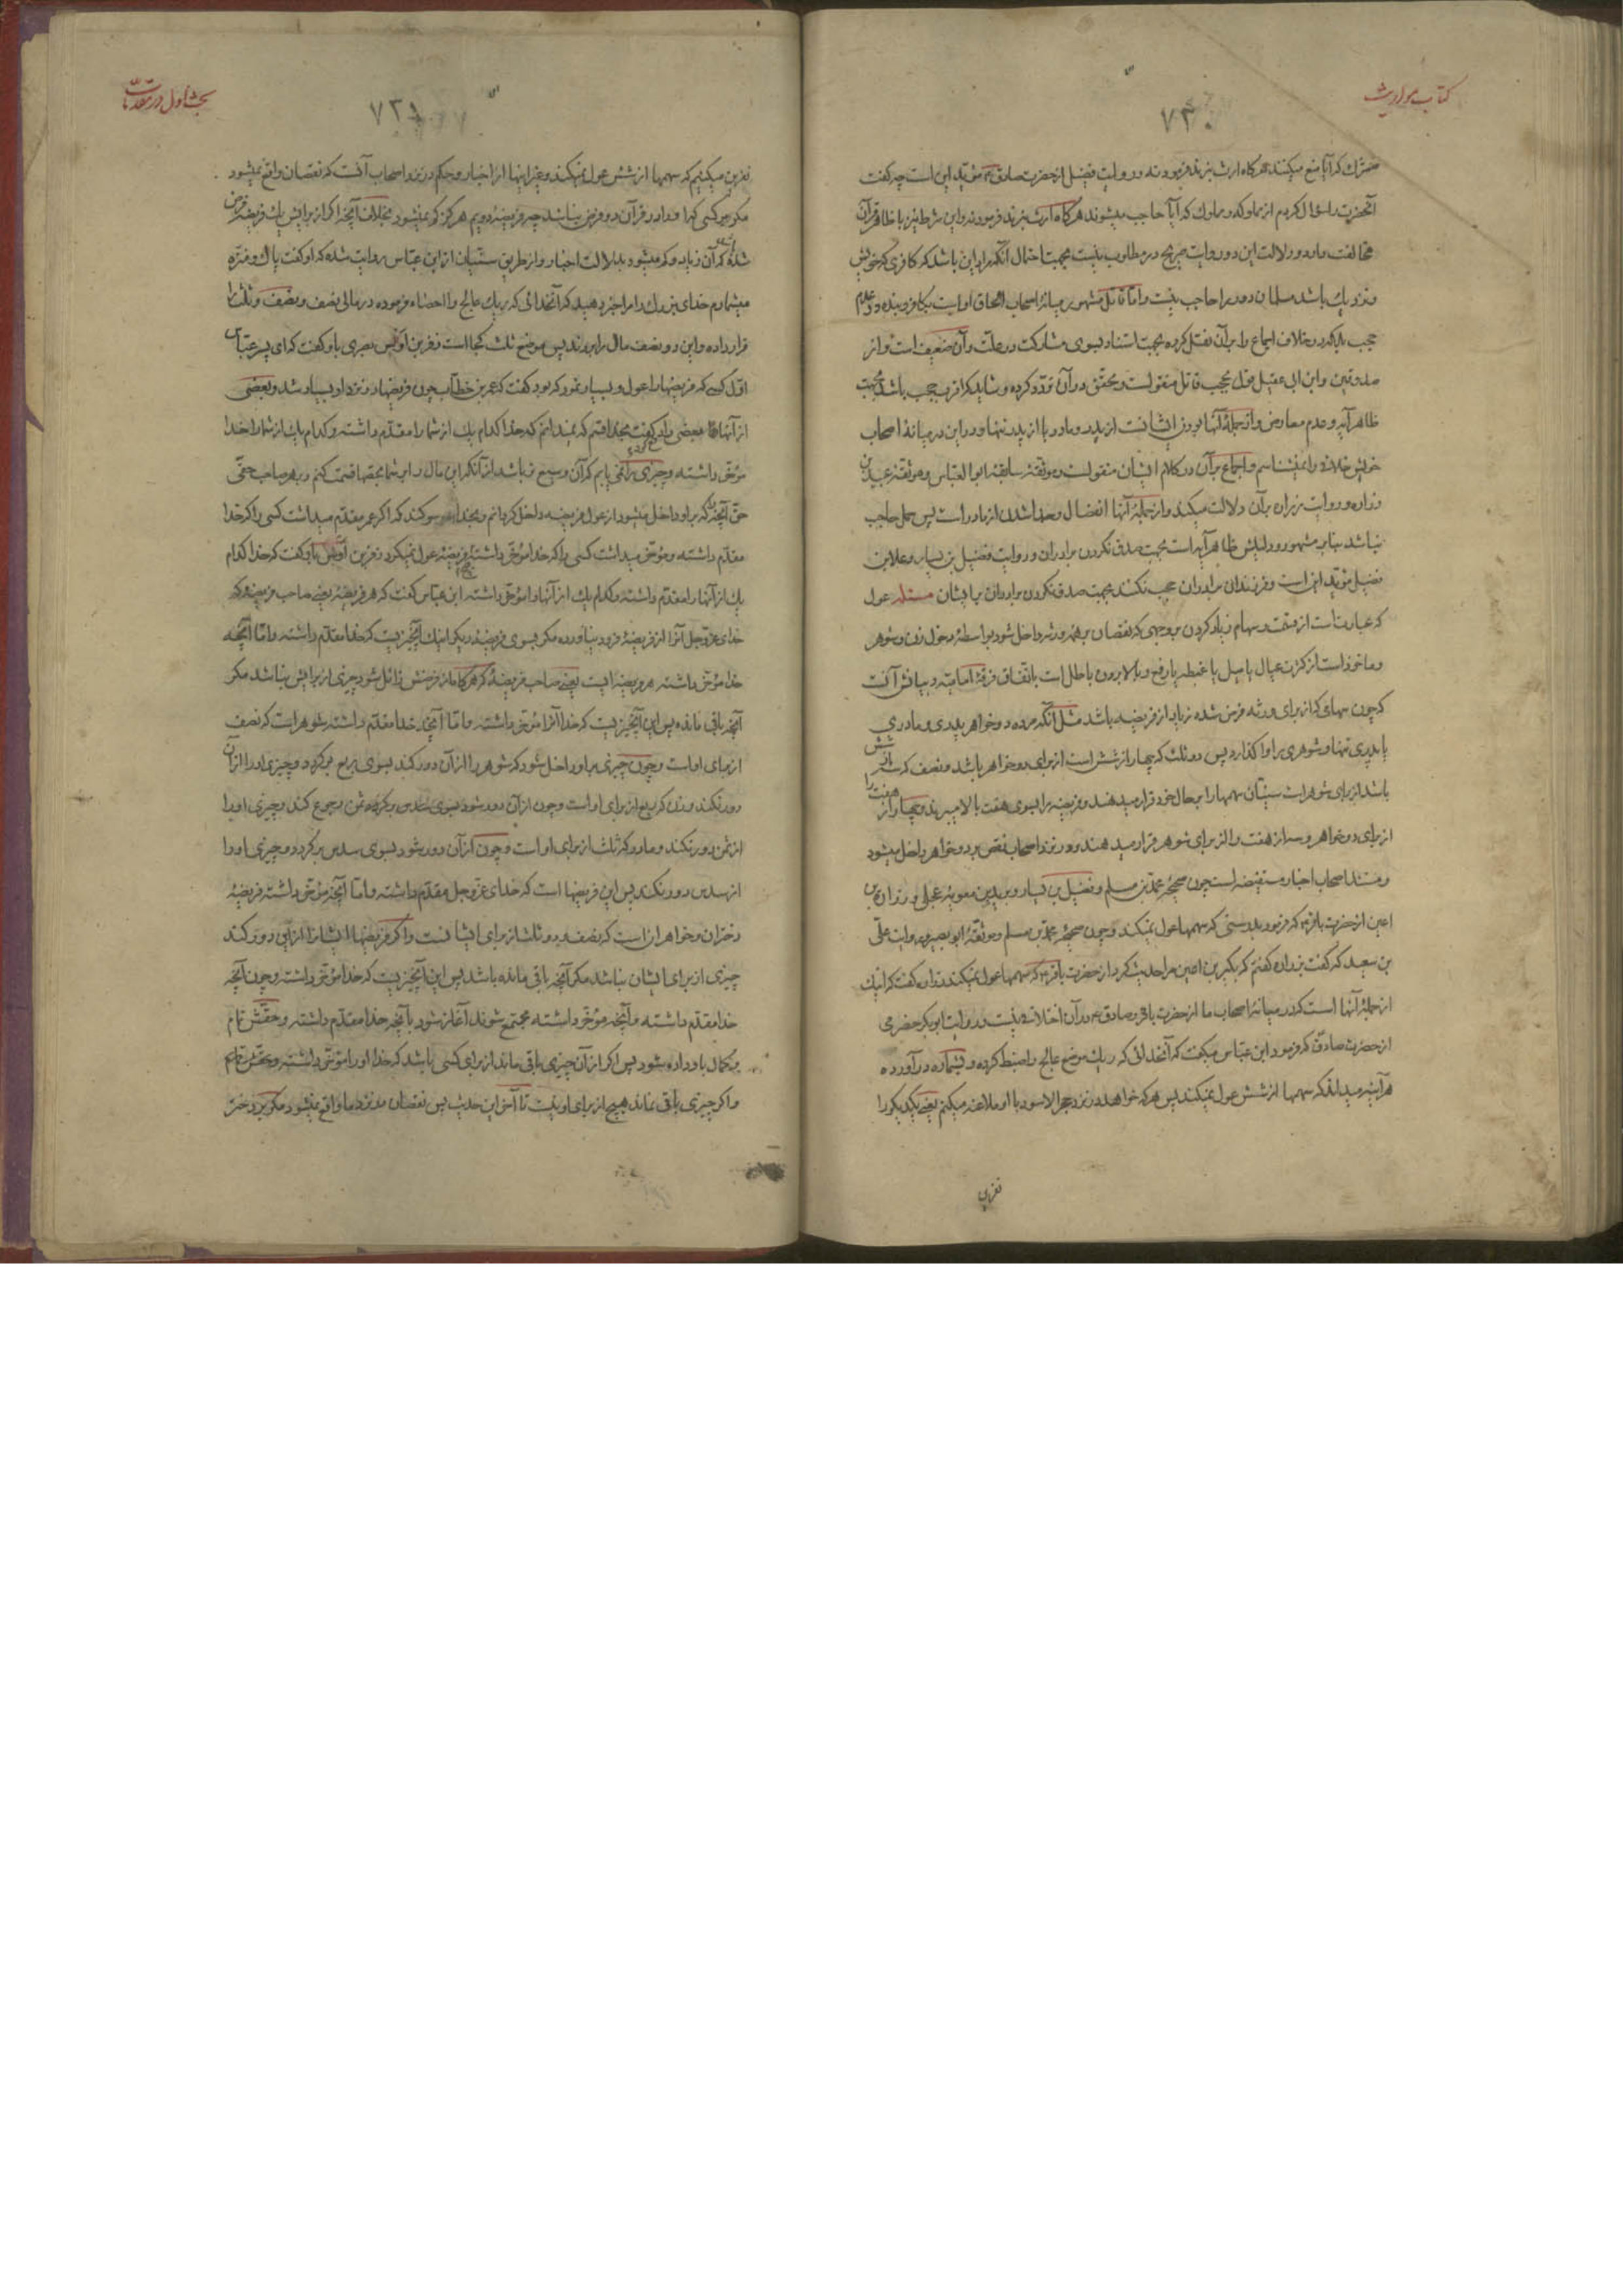 کتاب مواریث
۷۳۰
مشرک که آیا منع میکنند هر گاه ارث نبرند فرمود نه و روایت فضیل از حضرت صادق ع مؤید این است چه گفت
آنحضرت را سؤال کردم از مملوک و مملوک که آیا حاجب میشوند هر گاه ارث نبرند فرمود نه و این شرط نیز با ظاهر قرآن
مخالفت دارد و دلالت این دو روایت صریح در مطلوب نیست بجهت احتمال آنکه مراد این باشد که کافری که خویش
و نزدیک باشد مسلمان دور را حاجب نیست و اما قاتل مشهور میانهٔ اصحاب الحاق اوست بکافر و بنده در عدم
حجب بلکه در خلاف اجماع را بر آن نقل کرده بجهت استناد بسوی مشارکت در علت و آن ضعیف است و از
صدوقین و ابن ابی عقیل قول بحجب قاتل منقولست و محقق در آن تردد کرده و شاید که اقرب حجب باشد بجهت
ظاهر آیه و عدم معارض و از جملهٔ آنها بودن ایشانست از پدر و مادر یا از پدر تنها و در این در میانهٔ اصحاب
خویش خلاف را نمیشناسم و اجماع بر آن در کلام ایشان منقولست و موثقهٔ سابقهٔ ابو العباس و موثقهٔ عبید بن
زراره و روایت زراره بر آن دلالت میکند و از جملهٔ آنها انفصال و جدا شدن از مادر است پس حمل حاجب
نباشد بنابر مشهور و دلیلش ظاهر آیه است بجهت صدق نکردن برادران و روایت فضیل بن یسار و علاء بن
فضیل مؤید این است و فرزندان برادران حجب نکنند بجهت صدق نکردن برادران بر ایشان مسئله عول
که عبارت است از سهام زیاد کردن بر وجهی که نقصان بر همه ورثه داخل شود بواسطهٔ دخول زن و شوهر
و ماخوذ است از کثرت عیال یا میل یا غلبه یا رفع و بالا بردن باطل است باتفاق فرقهٔ امامیه و بیانش آنست
که چون سهامی که از برای ورثه فرض شده زیاد از فریضه باشد مثل آنکه مرده دو خواهر پدری و مادری
یا پدری تنها و شوهری را واگذارد پس دو ثلث که چهار از شش است از برای دو خواهر باشد و نصف که سه از شش
باشد از برای شوهر است سنیان سهمها را بر حال خود قرار میدهند و فریضه را بسوی هفت بالا میبرند و چهار از هفت را
از برای دو خواهر و سه از هفت را از برای شوهر قرار میدهند و در نزد اصحاب نقص بر دو خواهر داخل میشود
و مستند اصحاب اخبار مستفیضه است چون صحیحهٔ محمد بن مسلم و فضیل بن یسار و برید بن معویهٔ عجلی و زرارة بن
اعین از حضرت باقر ع که فرمود بدرستی که سهمها عول نمیکند و چون صحیحهٔ محمد بن مسلم و موثقهٔ ابو بصیر و روایت علی
بن سعید که گفت بزراره گفتم که بکیر بن اعین مرا حدیث کرد از حضرت باقر ع که سهمها عول نمیکند زراره گفت که اینک
از جملهٔ آنها است که در میانهٔ اصحاب ما از حضرت باقر و صادق ع در آن اختلاف نیست و روایت ابوبکر حضرمی
از حضرت صادق که فرمود ابن عباس میگفت که آنخدائی که ریگ موضع عالج را ضبط کرده و بشماره در آورده
هرآینه میداند که سهمها از شش عول نمیکند پس هر که خواهد در نزد حجر الاسود با او ملاعنه میکنم یعنی یکدیگر را
نفرین
بحث اول در مقدمات
۷۳۱
نفرین میکنیم که سهمها از شش عول نمیکند و غیر اینها از اخبار و حکم در نزد اصحاب آنست که نقصان واقع نمیشود
مگر بر کسی که او را در قرآن دو فرض نباشد چه فریضهٔ دویم هرگز کم نمیشود بخلاف آنچه اگر از برایش یک فریضه فرض
شده که آن زیاد و کم میشود بدلالت اخبار و از طریق سنیان از ابن عباس روایت شده که او گفت پاک و منزه
میشمارم خدای بزرگ را مرا خبر دهید که آنخدائی که ریگ عالج را احصاء فرموده در مالی نصف و نصف و ثلث را
قرار داده و این دو نصف مال را بردند پس موضع ثلث کجا است زفر بن اوس بصری باو گفت که ای پسر عباس
اول کسی که فریضها را عول و بسیار نمود که بود گفت که عمر بن خطاب چون فریضها در نزد او بسیار شد و بعضی
از آنها بعضی را دفع کرد گفت بخدا قسم که نمیدانم که خدا کدام یک از شما را مقدم داشته و کدام یک از شما را خدا
مؤخر داشته و چیزی را نمی یابم که آن وسیع تر باشد از آنکه این مال را بر شما بحصها قسمت کنم و بهر صاحب حقی
حق آنچه که بر او داخل میشود از عول فریضه داخل گردانم و بخدا سوگند که اگر عمر مقدم میداشت کسی را که خدا
مقدم داشته و مؤخر میداشت کسی را که خدا مؤخر داشته فریضهٔ عول نمیکرد زفر بن اوس باو گفت که خدا کدام
یک از آنها را مقدم داشته و کدام یک از آنها را مؤخر داشته ابن عباس گفت که هر فریضهٔ یعنی صاحب فریضهٔ که
خدای عز و جل آنرا از فریضهٔ فرود نیاورده مگر بسوی فریضهٔ دیگر اینک آنچیزیست که خدا مقدم داشته و اما آنچه
خدا مؤخر داشته هر فریضهٔ است یعنی صاحب فریضهٔ که هر گاه از فرضش زائل شود چیزی از برایش نباشد مگر
آنچه باقی مانده پس این آنچیزیست که خدا آنرا مؤخر داشته و اما آنچه خدا مقدم داشته شوهر است که نصف
از برای اوست و چون چیزی بر او داخل شود که شوهر را از آن دور کند بسوی ربع برگردد و چیزی او را از آن
دور نکند و زن که ربع از برای اوست و چون از آن دور شود بسوی ثمن رجوع کند و چیزی او را
از ثمن دور نکند و مادر که ثلث از برای اوست و چون از آن دور شود بسوی سدس برگردد و چیزی او را
از سدس دور نکند پس این فریضها است که خدای عز و جل مقدم داشته و اما آنچه مؤخر داشته فریضهٔ
دختران و خواهران است که نصف و دو ثلث از برای ایشانست و اگر فریضها ایشان را از این دور کند
چیزی از برای ایشان نباشد مگر آنچه باقی مانده باشد پس این آنچیزیست که خدا مؤخر داشته و چون آنچه
خدا مقدم داشته و آنچه مؤخر داشته مجتمع شوند آغاز شود بآنچه خدا مقدم داشته و حقش تمام
و کمال باو داده شود پس اگر از آن چیزی باقی ماند از برای کسی باشد که خدا او را مؤخر داشته
و اگر چیزی باقی نماند هیچ از برای او نیست تا آخر این حدیث پس نقصان در نزد ما واقع نمیشود مگر بر دختر